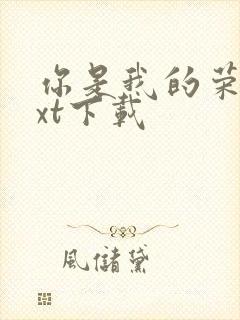 你是我的荣
xt下载
風儲黛